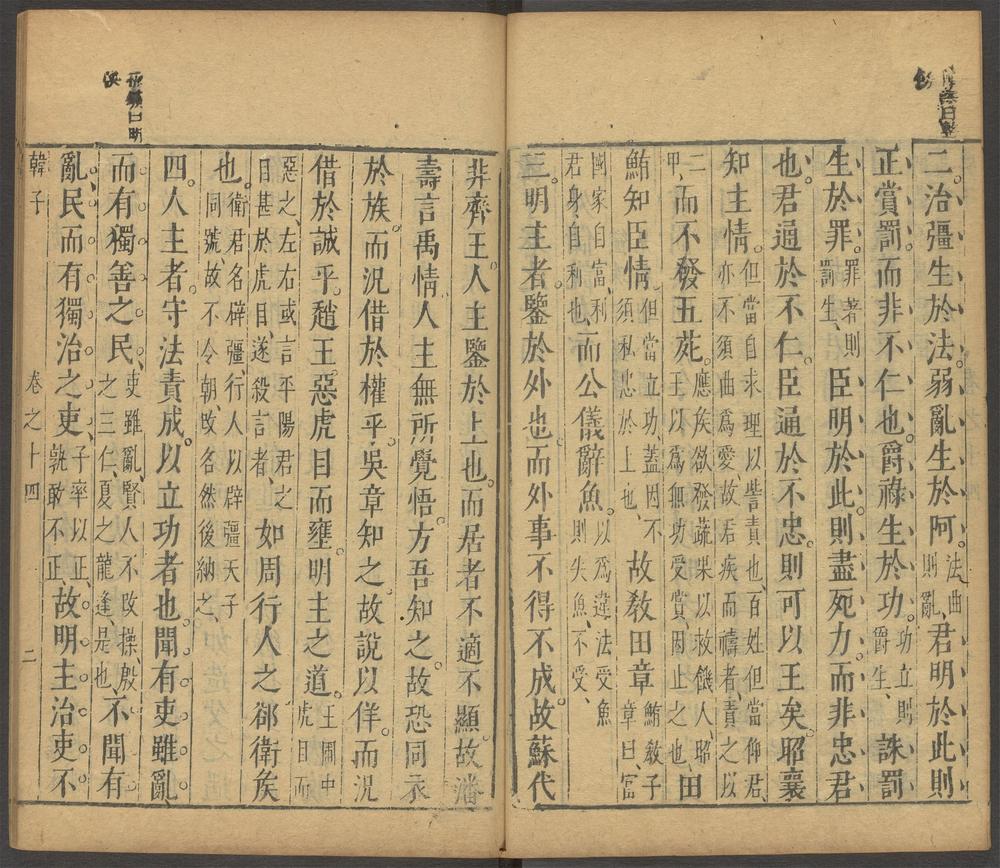 二。治彊生於法。弱亂生於阿。法曲則亂、君明於此則
正賞罰而非不仁也。爵祿生於功。功立則爵生、誅罰
生於罪。罪著則罰生、臣明於此。則盡死力而非忠君
也。君通於不仁。臣通於不忠。則可以王矣。昭襄
知主情。但當自求理以訾責也、百姓但當仰君、亦不須曲爲愛故君疾而禱者、責之以
二甲、而不發五苑。應侯欲發蔬果以救饑人、昭王以爲無功受賞、因止之也、田
鮪知臣情。但當立功、蓋因不須私忠於上也、故敎田章鮪敎子章曰、富
國家自富、利君身、自利也、而公儀辭魚。以爲違法受魚則失魚、不受、
三。明主者。鑒於外也。而外事不得不成。故蘇代
非齊王。人主鑒於上也。而居者不適不顯。故潘
壽言禹情。人主無所覺悟。方吾知之。故恐同衣
於族。而況借於權乎。吳章知之。故說以佯。而況
借於誠乎。趙王。惡虎目而壅。明主之道。王圃中虎目而
惡之、左右或言平陽君之目甚於虎目、遂殺言者、如周行人之郤衛侯
也。衛君名辟彊、行人以辟疆天子同號、故不令朝、改名然後納之、
四。人主者。守法責成。以立功者也。聞有吏雖亂
而有獨善之民、吏雖亂、賢人不改操、殷之三仁、夏之龍逢、是也、不聞有
亂民、而有獨治之吏、子率以正、孰敢不正、故明主治吏不
韓子
卷之十四
二